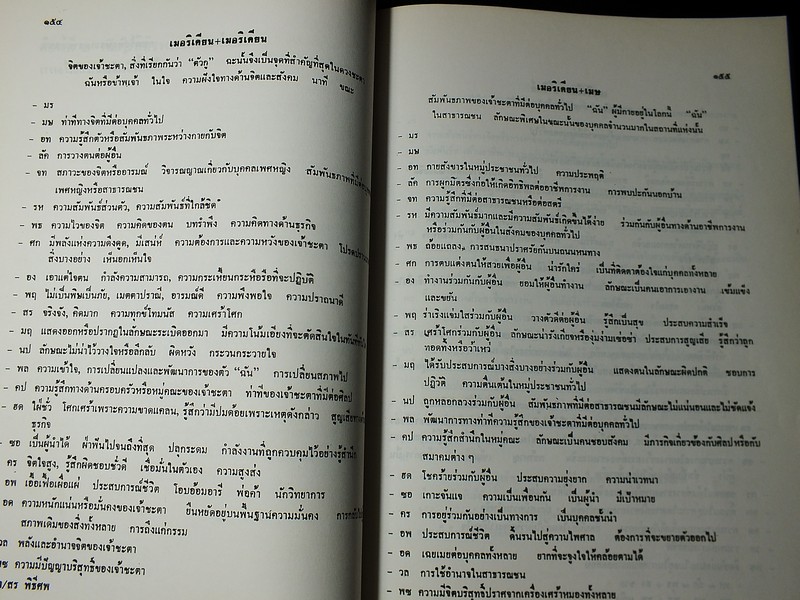 ๑๕๔
เมอริเดียน+เมอริเดียน
จิตของเจ้าชะตา, สิ่งที่เรียกกันว่า "ตัวกู" ฉะนั้นจึงเป็นจุดที่สำคัญที่สุดในดวงชะตา
ฉันหรือข้าพเจ้า ในใจ ความฝังใจทางด้านจิตและสังคม นาที ขณะ
- มร
- มษ ท่าทีทางจิตที่มีต่อบุคคลทั่วไป
- อท ความรู้สึกตัวหรือสัมพันธภาพระหว่างกายกับจิต
- ลัค การวางตนต่อผู้อื่น
- จท สภาวะของจิตหรืออารมณ์ วิจารณญาณเกี่ยวกับบุคคลเพศหญิง สัมพันธภาพที่มีต่อ
เพศหญิงหรือสาธารณชน
- รห ความสัมพันธ์ส่วนตัว, ความสัมพันธ์ที่ใกล้ชิด
- พธ ความไวของจิต ความคิดของตน บทรำพึง ความคิดทางด้านธุรกิจ
- ศก มีพลังแห่งความดึงดูด, มีเสน่ห์ ความต้องการและความหวังของเจ้าชะตา
สิ่งบางอย่าง เห็นอกเห็นใจ
- อง เอาแต่ใจตน กำลังความสามารถ, ความกระเหี้ยนกระหือรือที่จะปฏิบัติ
- พฤ ไม่เป็นพิษเป็นภัย, เมตตาปราณี, อารมณ์ดี ความพึงพอใจ ความปราถนาดี
- สร จริงจัง, คิดมาก ความทุกข์โทมนัส ความเศร้าโศก
- มฤ แสดงออกหรือปรากฏในลักษณะระเบิดออกมา มีความโน้มเอียงที่จะตัดสินใจในทันทีทันใด
- นป ลักษณะไม่น่าไว้วางใจหรือลึกลับ ผิดหวัง กระวนกระวายใจ
- พล ความเข้าใจ, การเปลี่ยนแปลงและพัฒนาการของตัว "ฉัน" การเปลี่ยนสภาพไป
- คป ความรู้สึกทางด้านครอบครัวหรือหมู่คณะของเจ้าชะตา ท่าทีของเจ้าชะตาที่มีต่อศิลป
- ฮด ใฝ่ชั่ว โศกเศร้าเพราะความขาดแคลน, รู้สึกว่ามีปมด้อยเพราะเหตุดังกล่าว
ธุรกิจ
- ซอ เป็นผู้นำได้ ฝ่าฟันไปจนถึงที่สุด ปลุกระดม กำลังงานที่ถูกควบคุมไว้อย่างรู้สำนึก
คร จิตใจสูง, รู้สึกผิดชอบชั่วดี เชื่อมั่นในตัวเอง ความสูงส่ง
อพ เอื้อเฟื้อเผื่อแผ่ ประสบการณ์ชีวิต โอบอ้อมอารี พ่อค้า นักวิทยาการ
อด ความหนักแน่นหรือมั่นคงของเจ้าชะตา ยืนหยัดอยู่บนพื้นฐานความมั่นคง
สภาพเดิมของสิ่งทั้งหลาย การถึงแก่กรรม
วล พลังและอำนาจจิตของเจ้าชะตา
พซ ความมีปัญญาบริสุทธิ์ของเจ้าชะตา
/สร พิธีศพ
๑๕๕
เมอริเดียน+เมษ
สัมพันธภาพของเจ้าชะตาที่มีต่อบุคคลทั่วไป "ฉัน" ผู้มีกายอยู่ในโลกนี้ "ฉัน"
ในสาธารณชน ลักษณะพิเศษในขณะนั้นของบุคคลจำนวนมากในสถานที่แห่งนั้น
- มร
- มษ
- อท กายสังขารในหมู่ประชาชนทั่วไป ความประพฤติ
- ลัค การผูกมิตรซึ่งก่อให้เกิดอิทธิพลต่ออาชีพการงาน การพบปะกันนอกบ้าน
- จท ความรู้สึกที่มีต่อสาธารณชนหรือต่อสตรี
- รห มีความสัมพันธ์มากและมีความสัมพันธ์เกิดขึ้นได้ง่าย ร่วมกันกับผู้อื่นทางด้านอาชีพการงาน
หรือร่วมกันกับผู้อื่นในสังคมของบุคคลทั่วไป
- พธ ถ้อยแถลง การสนธนาปราศรัยกันบนถนนหนทาง
- ศก การตบแต่งตนให้สวยเพื่อผู้อื่น น่ารักใคร่ เป็นที่ติดตาต้องใจแก่บุคคลทั้งหลาย
- อง ทำงานร่วมกันกับผู้อื่น ยอมให้ผู้อื่นทำงาน ลักษณะเป็นคนเอาการเอางาน เข้มแข็ง
และขยัน
- พฤ ร่าเริงแจ่มใสร่วมกับผู้อื่น วางตัวดีต่อผู้อื่น รู้สึกเป็นสุข ประสบความสำเร็จ
- สร เศร้าโศกร่วมกับผู้อื่น ลักษณะน่ารังเกียจหรืองุ่มง่ามเซ่อซ่า ประสบการสูญเสีย รู้สึกว่าถูก
ทอดทิ้งหรือว้าเหว่
- มฤ ได้รับประสบการณ์บางสิ่งบางอย่างร่วมกับผู้อื่น แสดงตนในลักษณะผิดปกติ ชอบการ
ปฏิวัติ ความตื่นเต้นในหมู่ประชาชนทั่วไป
- นป ถูกหลอกลวงร่วมกับผู้อื่น สัมพันธภาพที่มีต่อสาธารณชนมีลักษณะไม่แน่นอนและไม่ชัดแจ้ง
- พล พัฒนาการทางท่าทีความรู้สึกของเจ้าชะตาที่มีต่อบุคคลทั่วไป
- คป ความรู้สึกสำนึกในหมู่คณะ ลักษณะเป็นคนชอบสังคม มีภารกิจเกี่ยวข้องกับศิลปหรือกับ
สมาคมต่าง ๆ
- ฮด โชคร้ายร่วมกับผู้อื่น ประสบความยุ่งยาก ความน่าเวทนา
- ซอ เกาะจันแจ ความเป็นเพื่อนกัน เป็นผู้นำ มีเป้าหมาย
- คร การอยู่ร่วมกันอย่างเป็นทางการ เป็นบุคคลชั้นนำ
- อพ ประสบการณ์ชีวิต ดิ้นรนไปสู่ความไพศาล ต้องการที่จะขยายตัวออกไป
- อด เฉยเมยต่อบุคคลทั้งหลาย ยากที่จะจูงใจให้คล้อยตามได้
- วล การใช้อำนาจในสาธารณชน
- พซ ความมีจิตบริสุทธิ์ปราศจากเครื่องเศร้าหมองทั้งหลาย